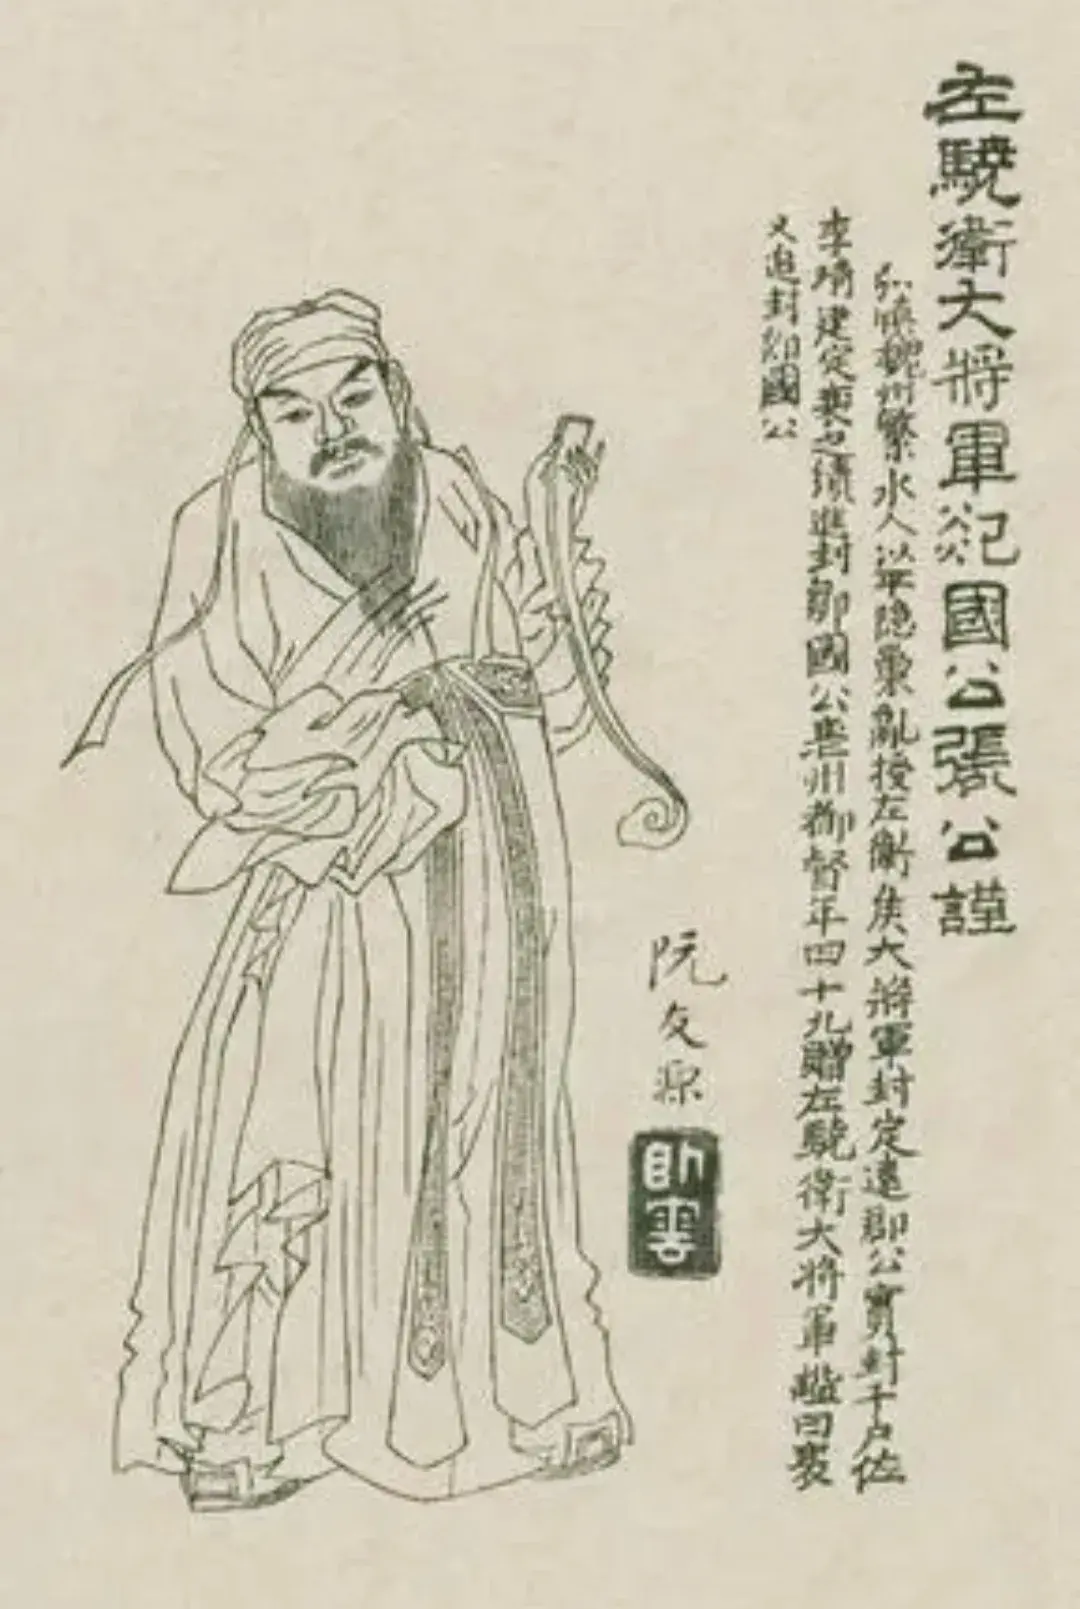 左驍衛大將軍郯國公張公謹
弘慎魏州繁水人以平隱東亂授左衛矦大將軍封定遠郡公實封千户佐
李靖建定襄之績進封鄒國公襄州都督年四十九贈左驍衛大將軍謚曰襄
又進封郯國公
阮友源